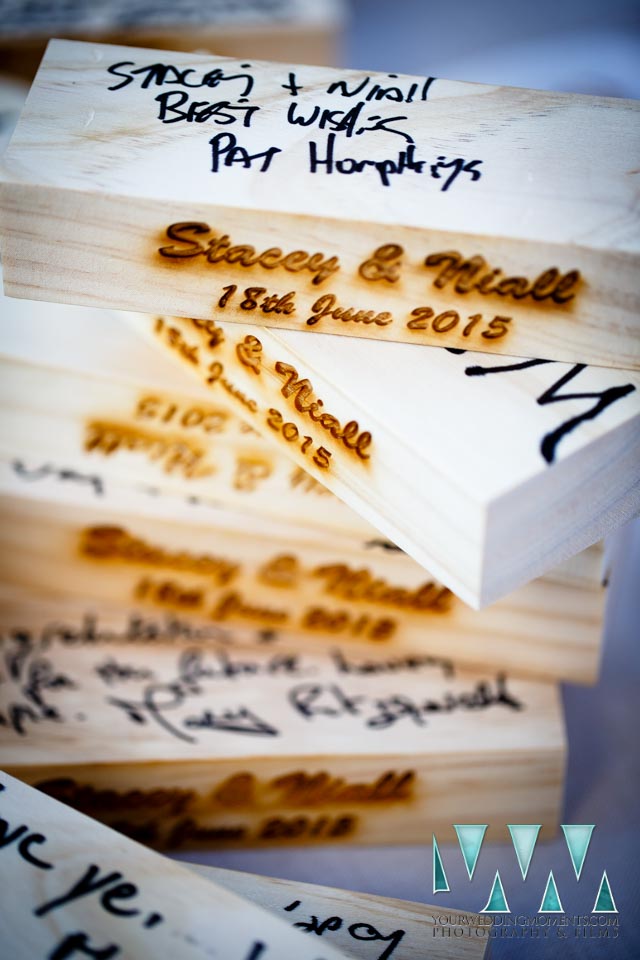 Stacey + Niall
Best Wishes
Pat Homphreys
Stacey & Niall
18th June 2015
& Niall
18th June 2015
2015
& Niall
Stacey & Niall
18th June 2015
for the future
Mary Fitzgerald
Stacey & Niall
18th June 2015
ye,
YOURWEDDINGMOMENTS.COM
PHOTOGRAPHY & FILMS